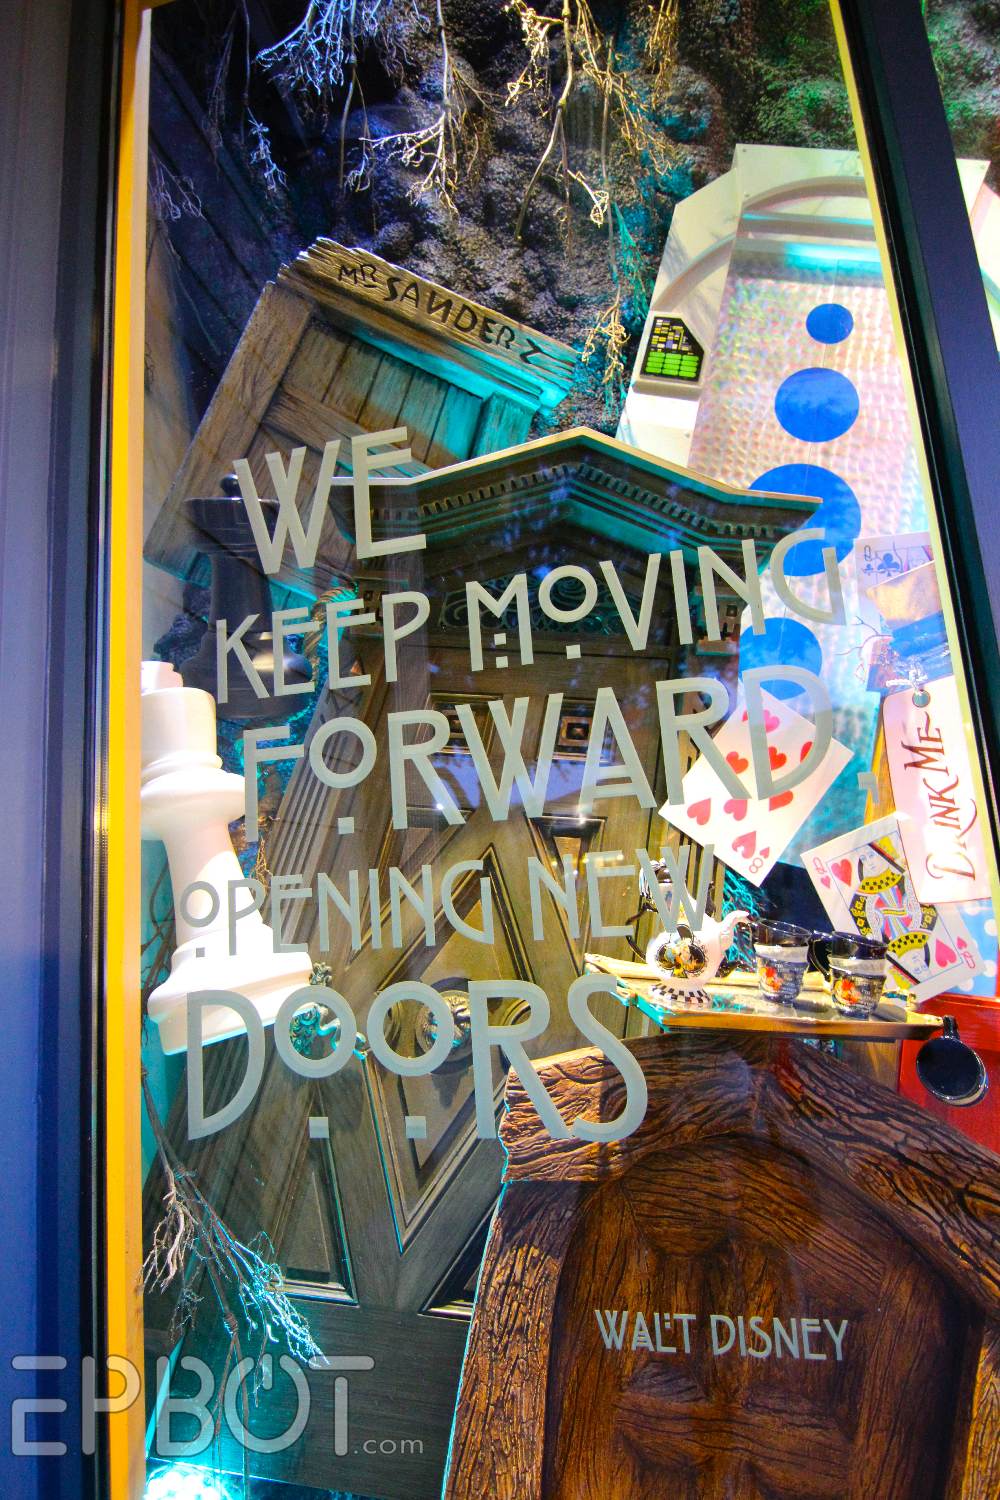 MR SANDERZ
WE
KEEP MOVING
FORWARD,
OPENING NEW
DOORS
DRINK ME
8
Q
Q
WALT DISNEY
EPBOT.com